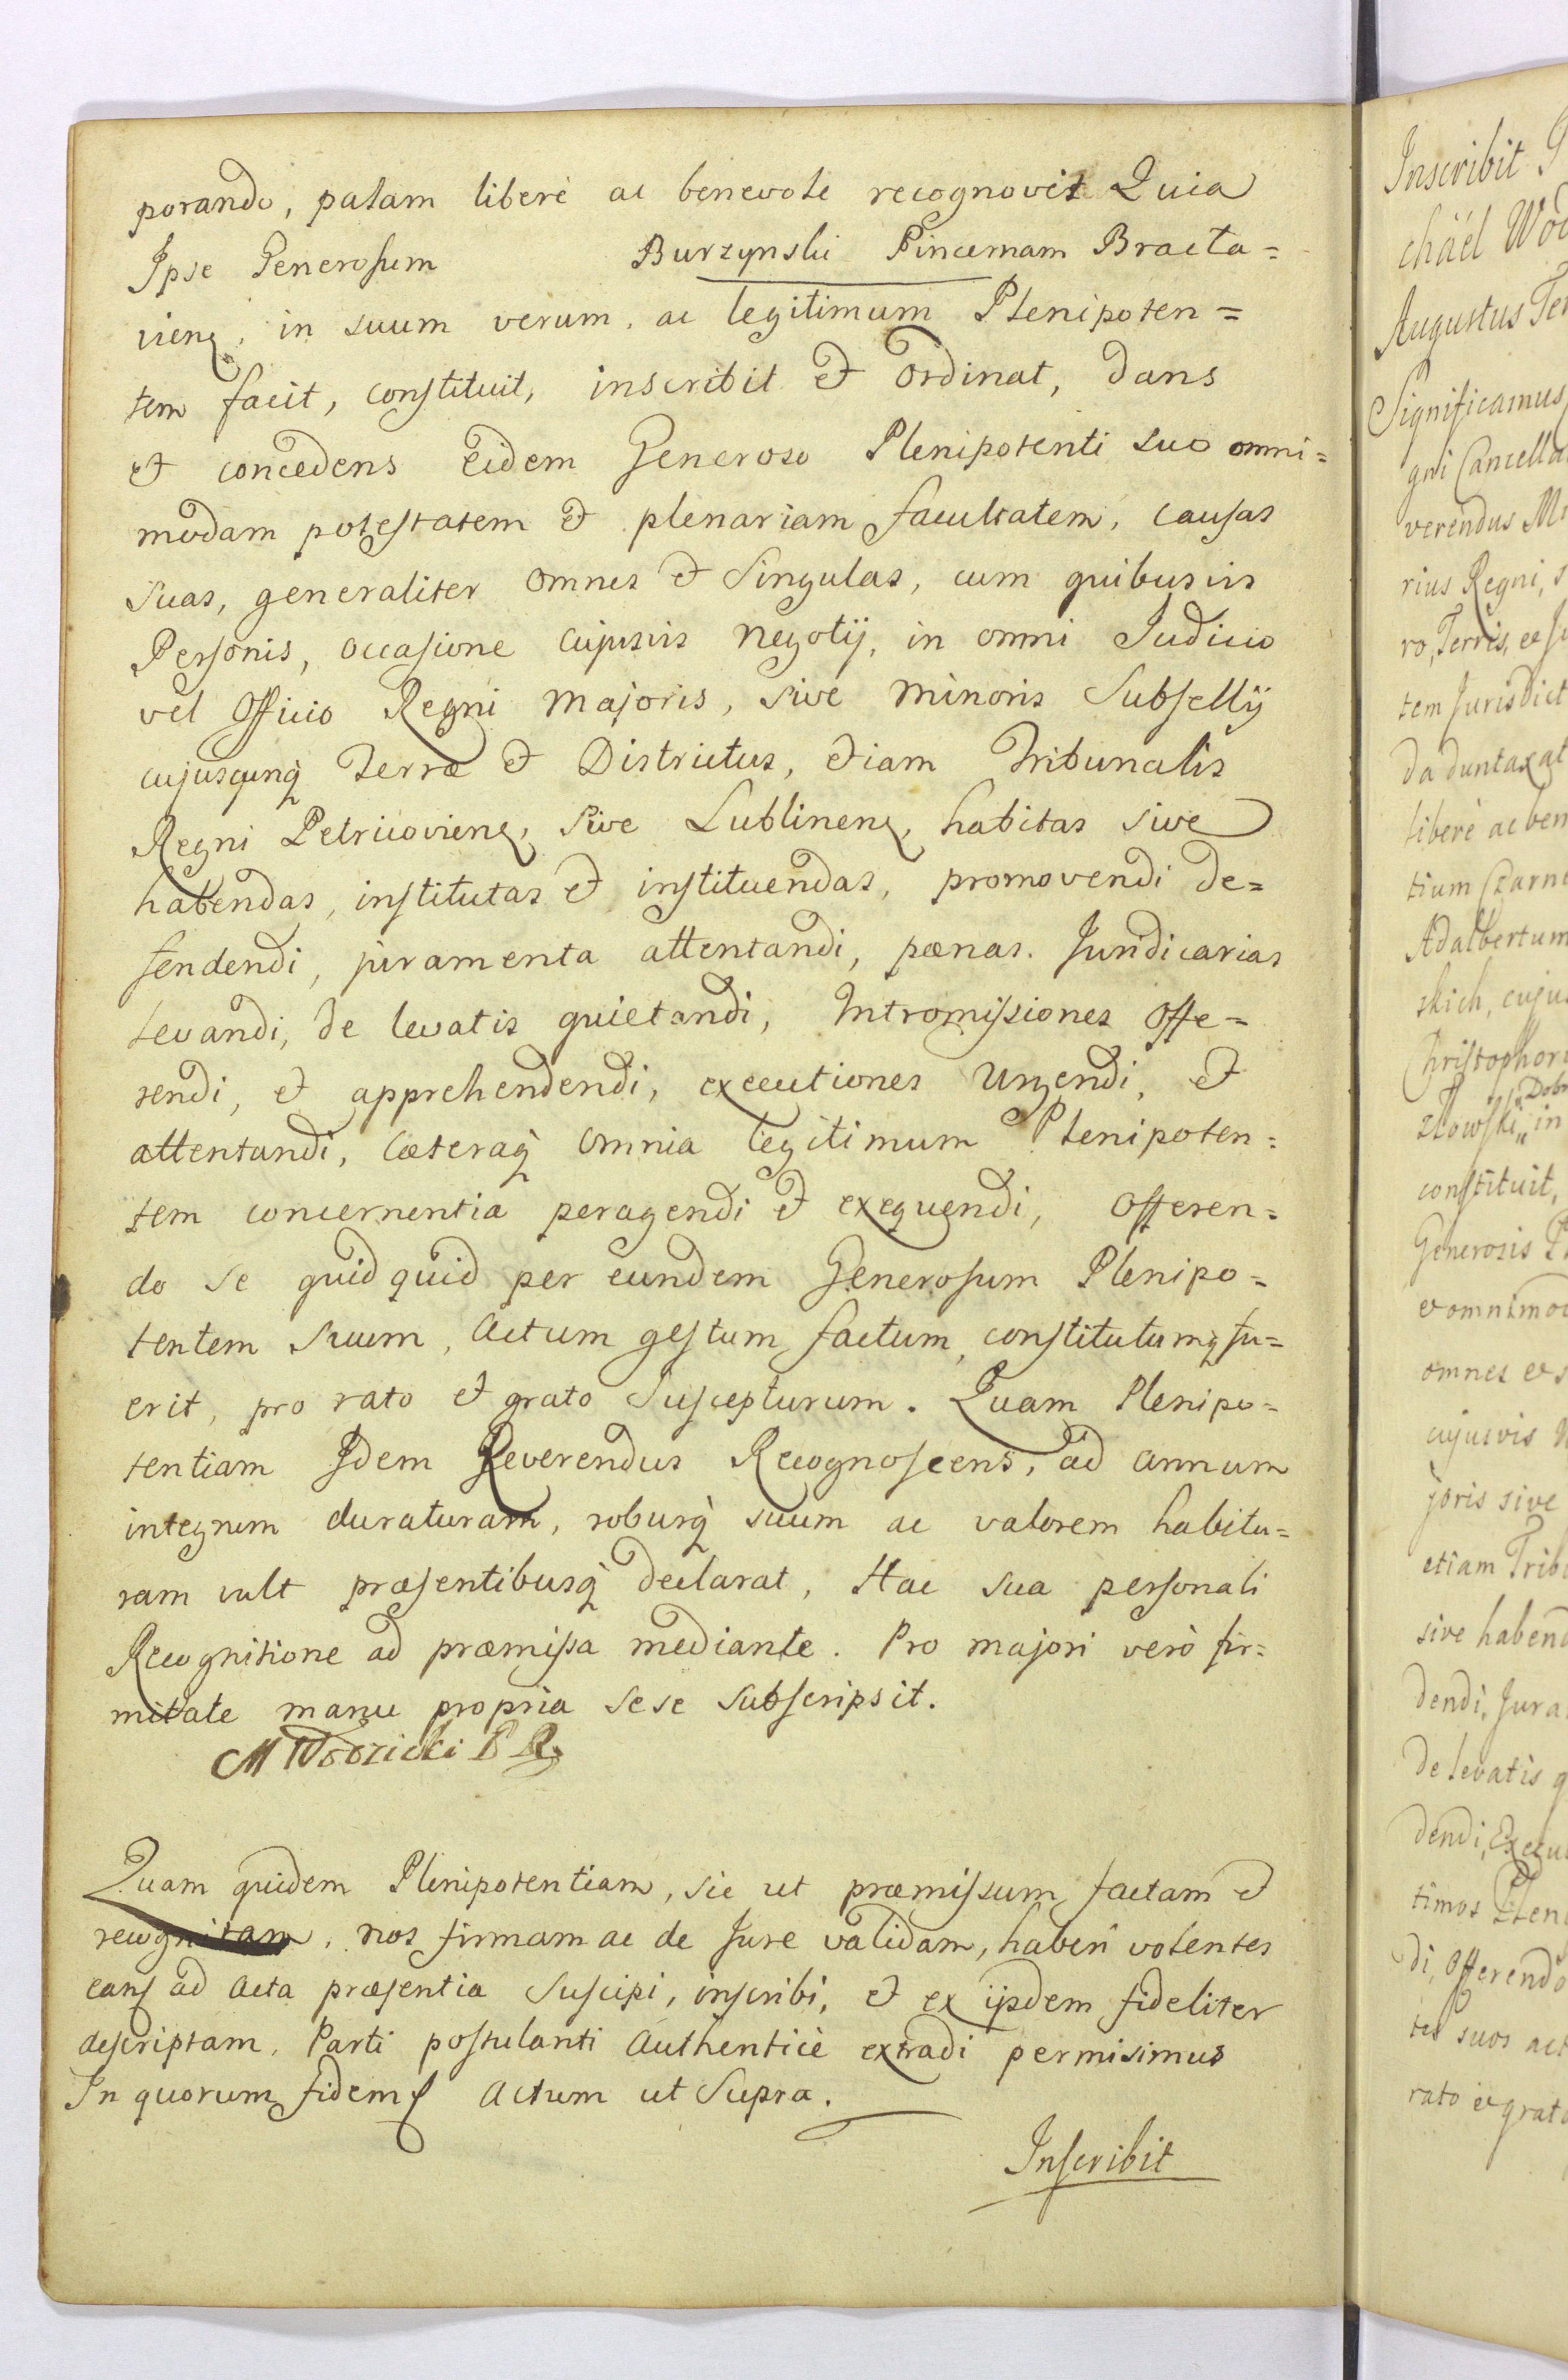 porando, palam liberè ac benevole recognovit Quia
Ipse Generosum Burzynski Pincernam Bracła=
vienę, in suum verum, ac legitimum Plenipoten=
tem facit, constituit, inscribit et ordinat, dans
et concedens Eidem Generoso Plenipotenti suo omni=
modam potestatem et plenariam facultatem, causas
suas, generaliter omnes et Singulas, cum quibusvis
Personis, occasione cujusvis negotij, in omni Judicio
vel Officio Regni majoris, sive minoris Subsellij
cujuscunq̀ Terræ et Districtus, etiam Tribunalis
Regni Petricovienę, sive Lublinenę, habitas sive
habendas, institutas et instituendas, promovendi de=
fendendi, juramenta attentandi, pœnas. Juridicarias
levandi, de levatis quietandi, Intromissiones offe=
rendi, et apprehendendi, executiones urgendi, et
attentandi, cæteraq̀ omnia legitimum Plenipoten=
tem concernentia peragendi et exequendi, Offeren=
do se quidquid per eundem Generosum Plenipo=
tentem suum, actum gestum factum, constitutumq̨ fu=
erit, pro rato et grato suscepturum. Quam Plenipo=
tentiam Idem Reverendus Recognoscens, ad annum
integrum duraturam, roburq̀ suum ac valorem habitu=
ram vult præsentibusq̀ declarat, Hac sua personali
Recognitione ad præmissa mediante. Pro majori verò fir=
mitate manu propria sese subscripsit.
M Wodzicki P R
Quam quidem Plenipotentiam, sic ut præmissum factam et
recognitam, nos firmam ac de Jure validam, haberi volentes
eam ad acta præsentia suscipi, inscribi, et ex ijsdem fideliter
descriptam, Parti postulanti authenticè extradi permisimus
In quorum fidem actum ut Supra.
Inscribit
Inscribit
chäel
Augustus
Significamus
gni Cancella
verendus
rius Regni,
ro, Terris, et
tem Jurisdict
da duntaxat
liberè ac ben
tium Czarn
Adalbertum
skich, cujus
Christophor
złowski in
constituit,
Generosis
et omnimod
omnes et s
cujusvis
joris sive
etiam Trib
sive habend
dendi, Jura
de levatis q
dendi, Execu
timos Plen
di, Offerendo
tes suos act
rato et grato